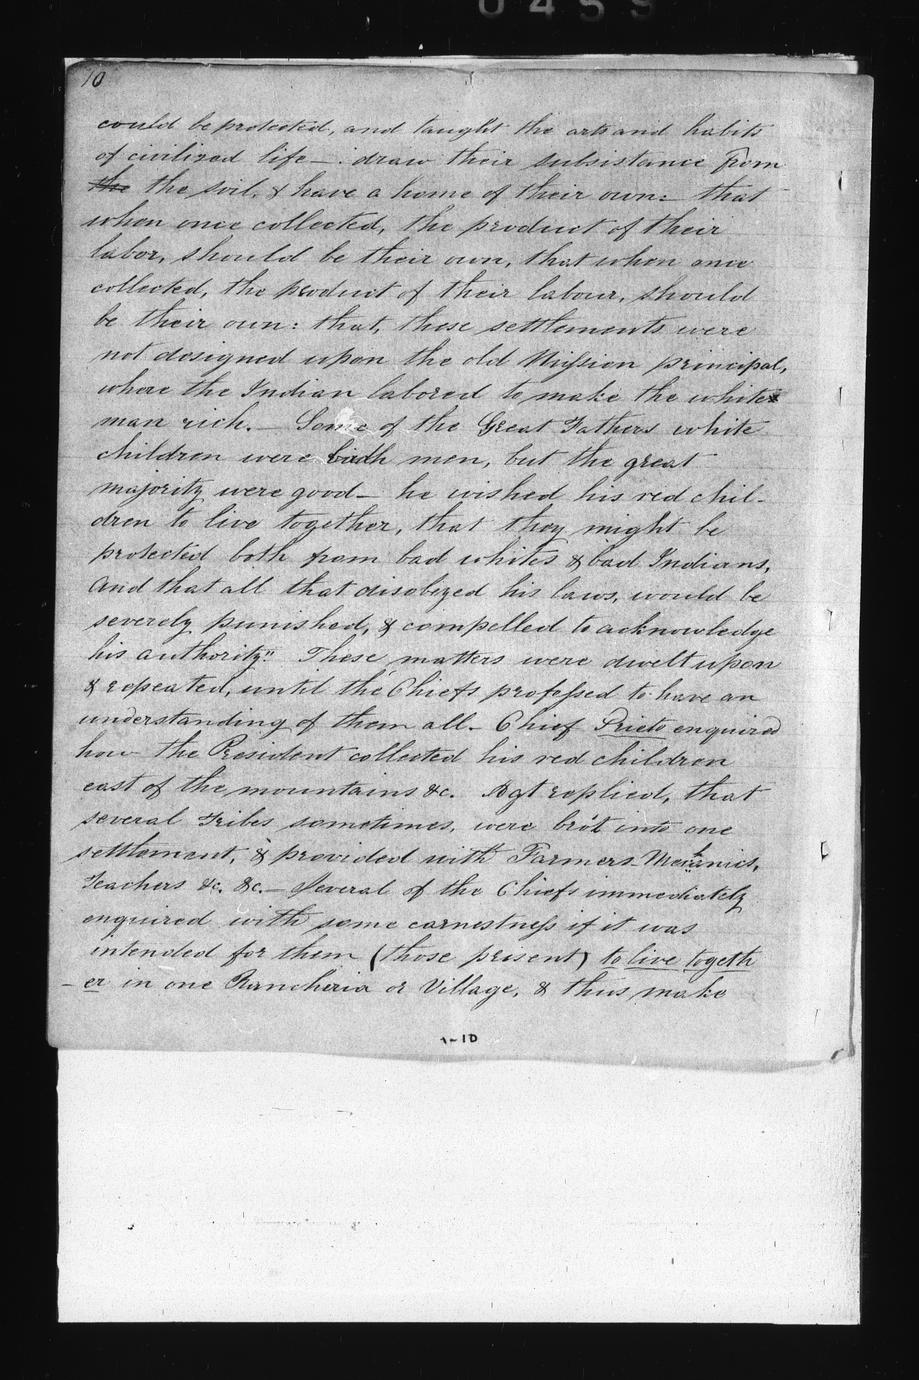 0459
10
could be protected, and taught the arts and habits
of civilized life — : draw their subsistance from
the the soil, & have a home of their own: that
when once collected, the product of their
labor, should be their own, that when once
collected, the product of their labour, should
be their own: that, these settlements were
not designed upon the old Mission principal,
where the Indian labored to make the white
man rich. — Some of the Great Fathers white
children were bad men, but the great
majority were good — he wished his red chil-
dren to live together, that they might be
protected both from bad whites & bad Indians,
and that all that disobeyed his laws, would be
severely punished, & compelled to acknowledge
his authority." These matters were dwelt upon
& repeated, until the Chiefs professed to have an
understanding of them all. Chief Prieto enquired
how the President collected his red children
east of the mountains &c. Agt replied, that
several Tribes sometimes, were bro't into one
settlement, & provided with Farmers - Mechanics,
Teachers &c, &c. — Several of the Chiefs immediately
enquired with some earnestness if it was
intended for them (those present) to live togeth
- er in one Rancheria or Village, & thus make
1-10